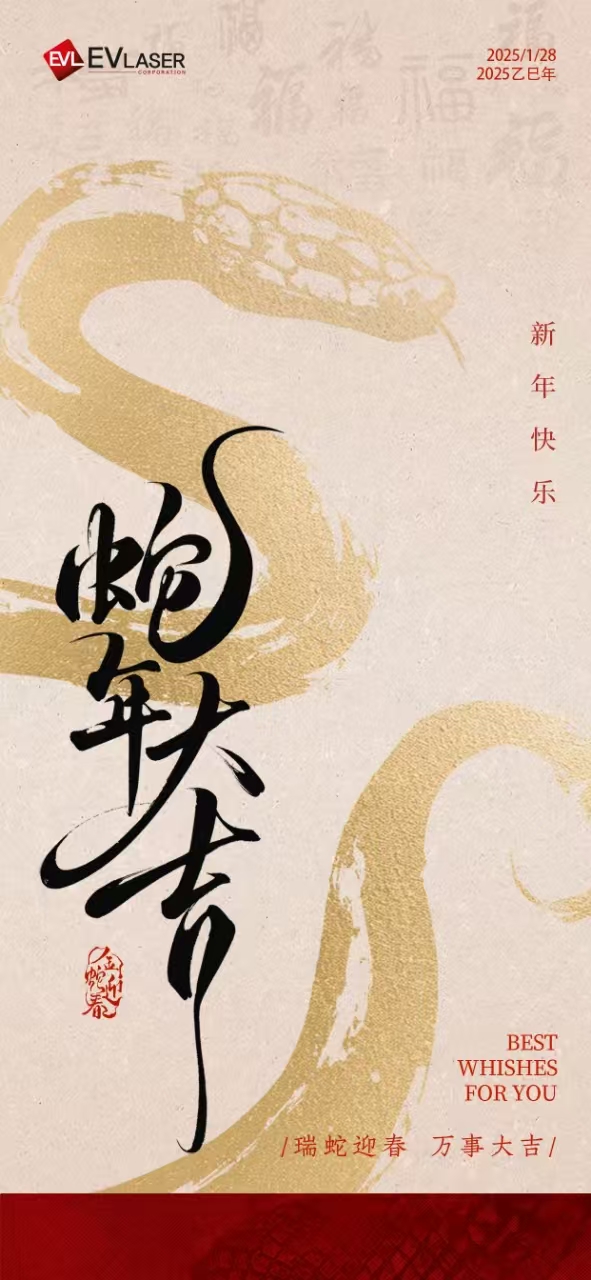 EVL EVLASER
CORPORATION
2025/1/28
2025乙巳年
新年快乐
蛇年大吉
金蛇迎春
BEST
WHISHES
FOR YOU
/瑞蛇迎春 万事大吉/